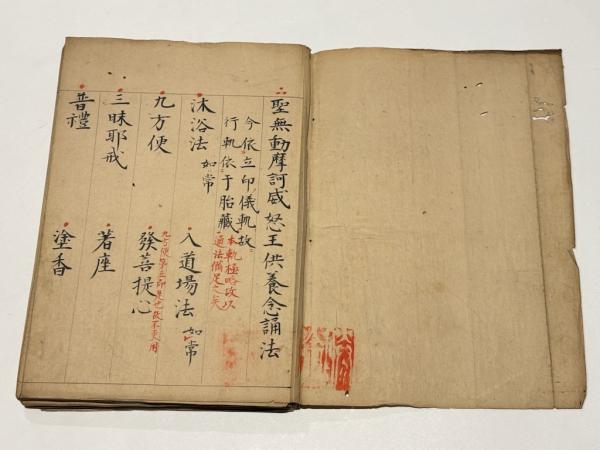 聖無動摩訶威怒王供養念誦法
今依立印儀軌故
行軌依于胎藏
本軌極略故以
通法備足之矣
沐浴法 如常
入道場法 如常
九方便
發菩提心
九方便第五印是也故不更用
三昧耶戒
著座
普禮
塗香